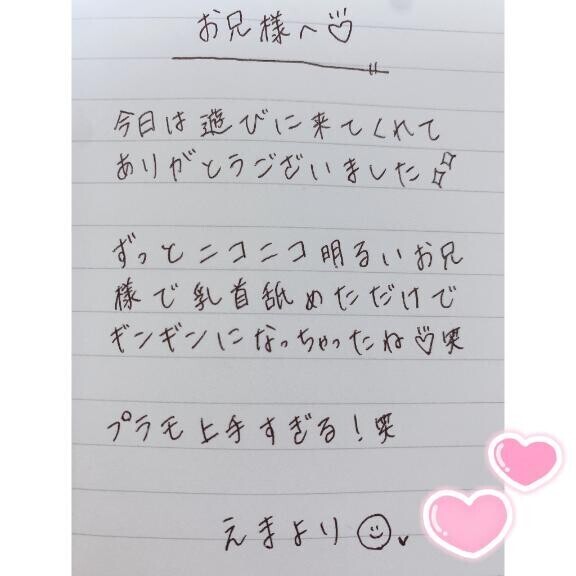 お兄様へ♡
今日は遊びに来てくれて
ありがとうございました✨
ずっとニコニコ明るいお兄
様で乳首舐めただけで
ギンギンになっちゃったね♡笑
プラモ上手すぎる！笑
えまより☺♥